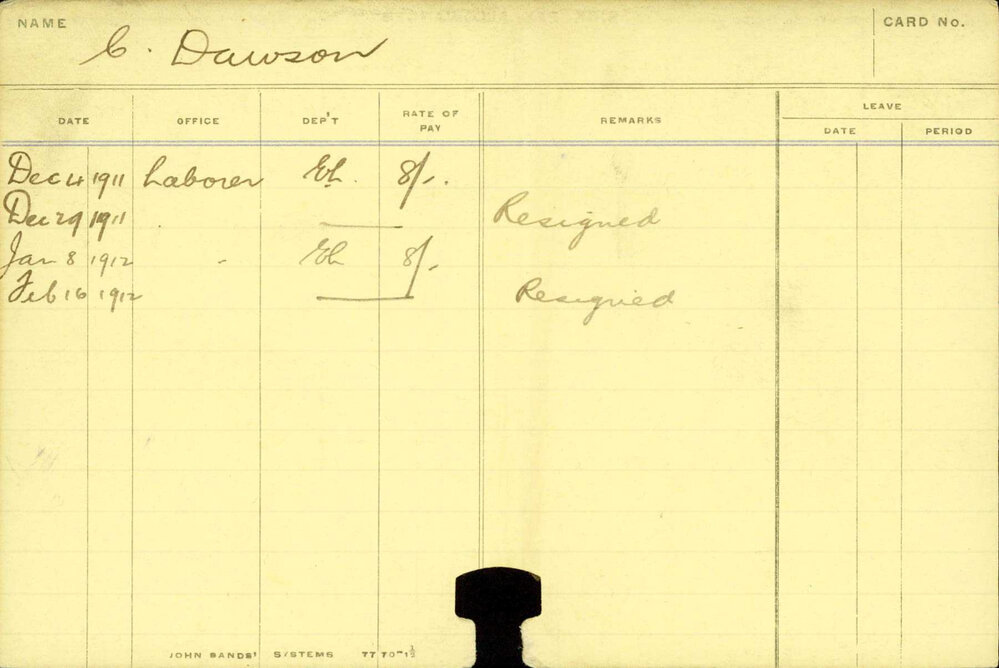 NAME C. Dawson CARD No.
DATE OFFICE DEP'T RATE OF PAY REMARKS LEAVE
DATE PERIOD
Dec 4 1911 Laborer 8/-.
Dec 29 1911 Resigned
Jan 8 1912 " 8/-
Feb 16 1912 Resigned
JOHN SANDS' SYSTEMS 7770-1½